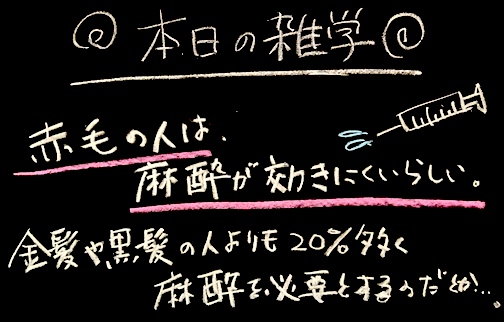 本日の雑学
赤毛の人は、
麻酔が効きにくいらしい。
金髪や黒髪の人よりも20%多く
麻酔を必要とするのだとか…。